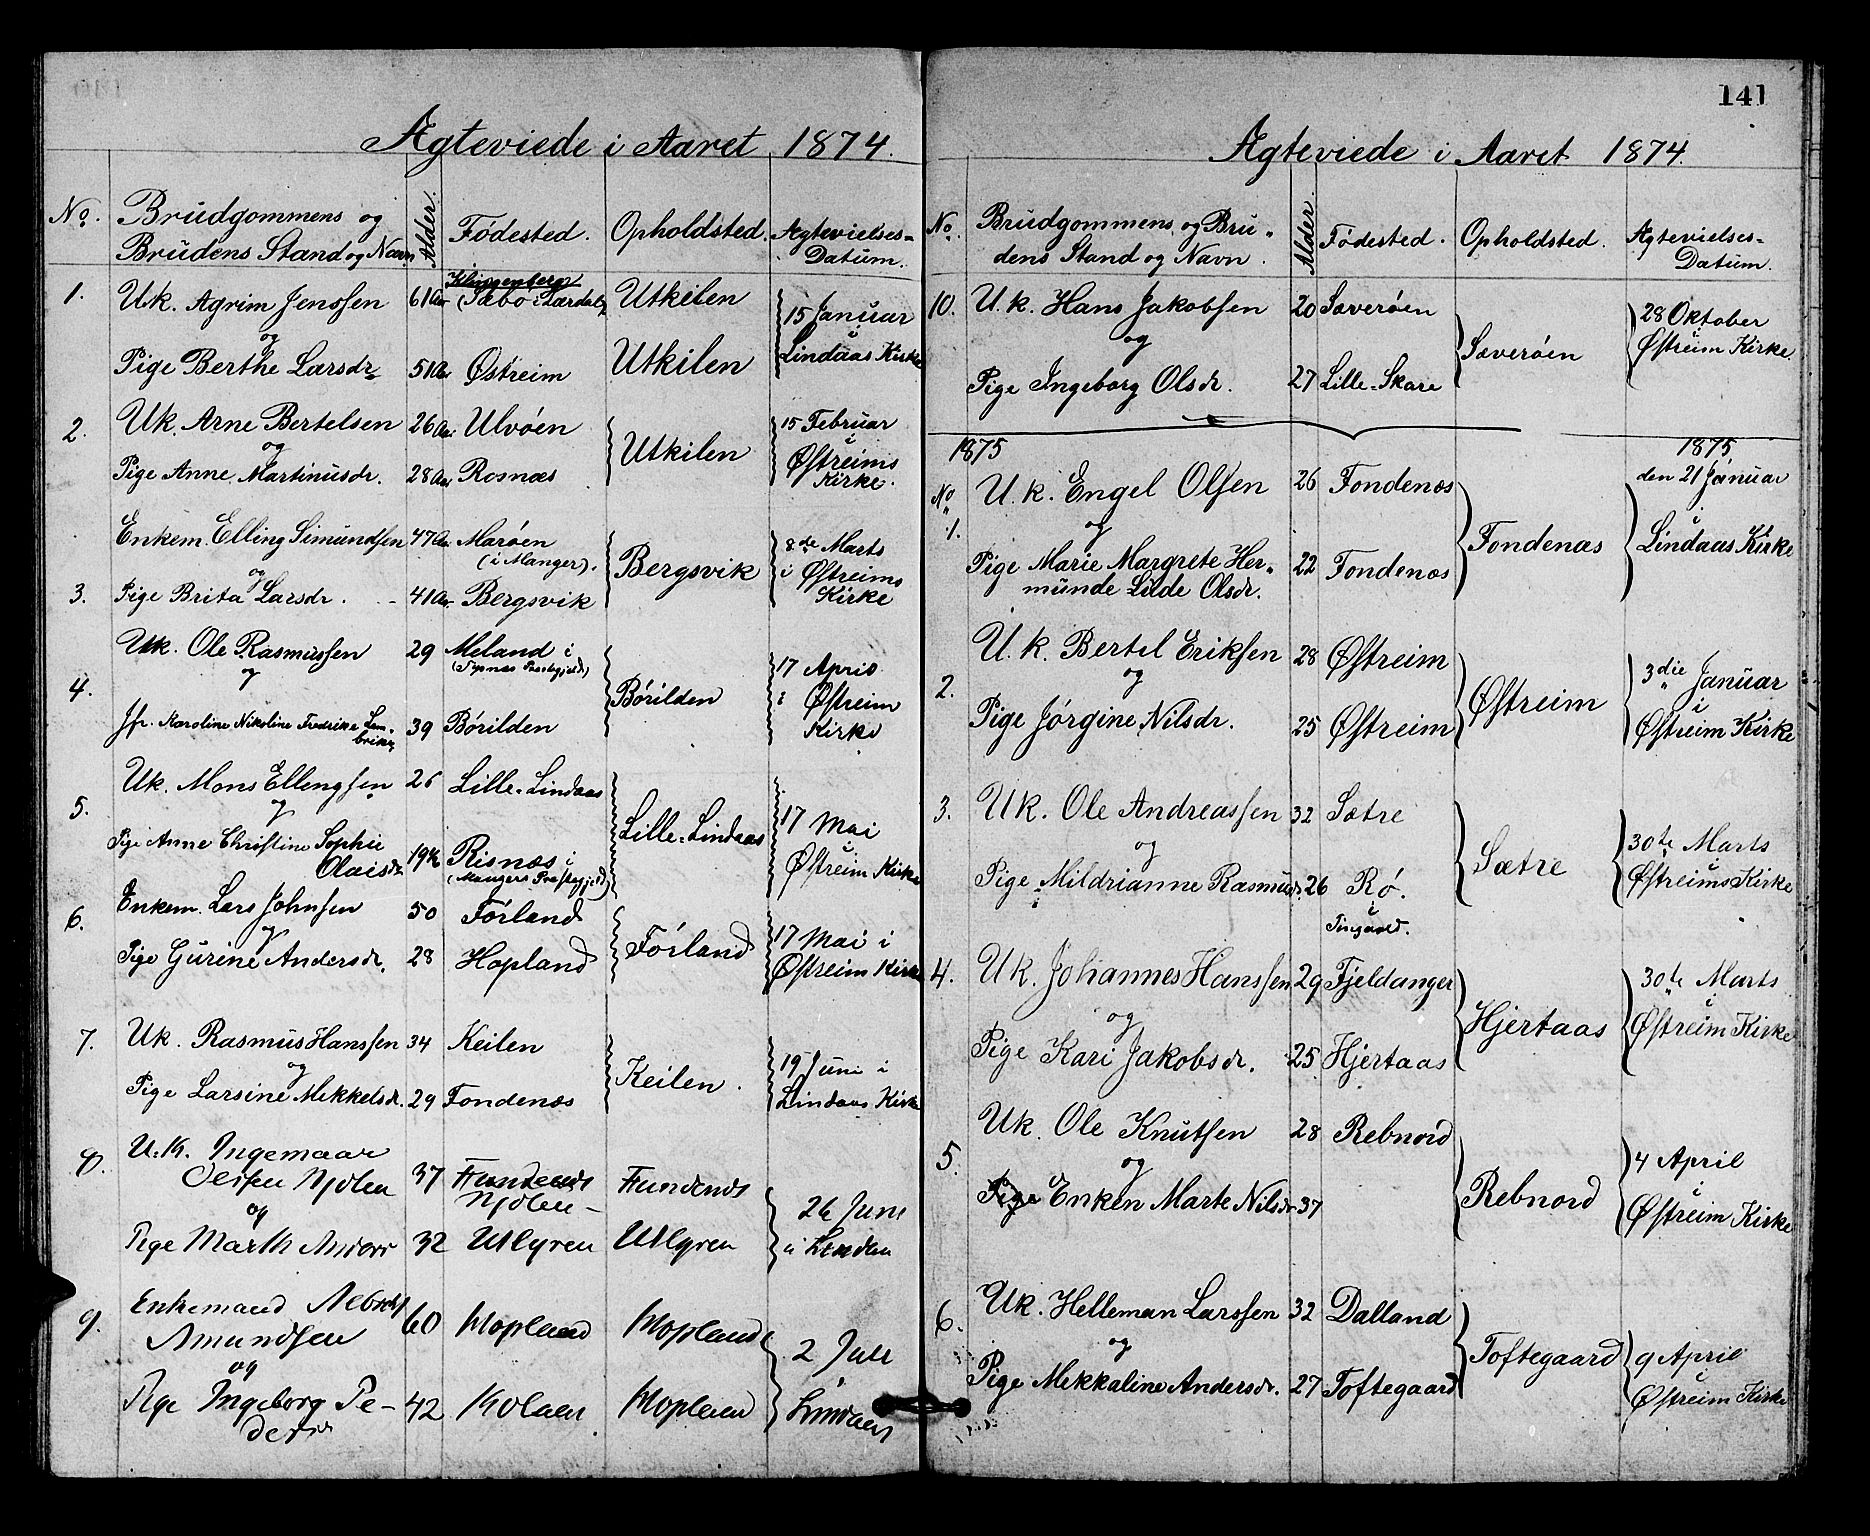 Ægteviede i Aaret 1874.
No. Brudgommens og Brudens Stand og Navn Alder Fødested. Opholdsted. Ægtevielses-Datum.
1. Uk. Agrim Jenssen 61 Aar Klingenberg (Sæbø i Lærdal) Utkilen 15 Januar
og i
Pige Berthe Larsdr. 51 Aar Østreim Utkilen Lindaas Kirke
2. Uk. Arne Bertelsen 26 Aar Ulvøen Utkilen 15 Februar
og i
Pige Anne Martinusdr. 28 Aar Rosnæs Østreims Kirke.
Enkem. Elling Simundsen 47 Aar Marøen (i Manger). Bergsvik 8de Marts
og i Østreims
3. Pige Brita Larsdr. 41 Aar Bergsvik Kirke
Uk. Ole Rasmussen 29 Meland i 17 April
og
4. Børilden i Østreim
Jfr. Karoline Nikoline Fredrike Lembriken 39 Børilden Kirke
Uk. Mons Ellengsen 26 Lille-Lindaas
5. og Lille-Lindaas 17 Mai
Pige Anne Christine Sophie Olaisdr. 19½ Risnæs i (Mangers Præstegjeld) Østreim Kirke
6. Enkem. Lars Johnsen 50 Førland
og Førland 17 Mai i
Pige Gurine Andersdr. 28 Hopland Østreim Kirke
7. Uk. Rasmus Hanssen 34 Keilen
og Keilen. 19 Juni i
Pige Larsine Mikkelsdr. 29 Fondenæs Lindaas Kirke
8. U.K. Ingemaar
Njølen 37 Njølen
og 26 Juni
Pige 32
9. Enkemand
Amundsen 60 Hopland Hopland
og 2 Juli
Pige Ingeborg Pedersdr 42 Lindaas
141
Ægteviede i Aaret 1874.
No. Brudgommens og Brudens Stand og Navn. Alder. Fødested. Opholdsted. Ægtevielses-Datum.
10. U.k. Hans Jakobsen 20 Sæverøen 28 Oktober
og Sæverøen i Østreim Kirke
Pige Ingeborg Olsdr. 27 Lille-Skare
1875 1875
No 1. U.k. Engel Olsen 26 Fondenæs den 21 Januar
og Fondenæs i
Pige Marie Margrete Hermunde Lilde Olsdr. 22 Fondenæs Lindaas Kirke
U.k. Bertel Eriksen 28 Østreim 3die Januar
2. og Østreim i
Pige Jørgine Nilsdr. 25 Østreim Østreim Kirke
3. Uk. Ole Andreassen 32 Sætre 30te Marts
og Sætre i
Pige Mildrianne Rasmusdr. 26 Rø. Østreims Kirke
4. Uk. Johannes Hanssen 29 Fjeldanger 30te Marts
og Hjertaas i
Pige Kari Jakobsdr. 25 Hjertaas Østreim Kirke
Uk. Ole Knutsen 28 Rebnord
5. og Rebnord 4 April i
Pige Enken Marte Nilsdr 37 Østreim Kirke
6. Uk. Helleman Larssen 32 Dalland
og Toftegaard 9 April
Pige Mekkaline Andersdr. 27 Toftegaard Østreim Kirke